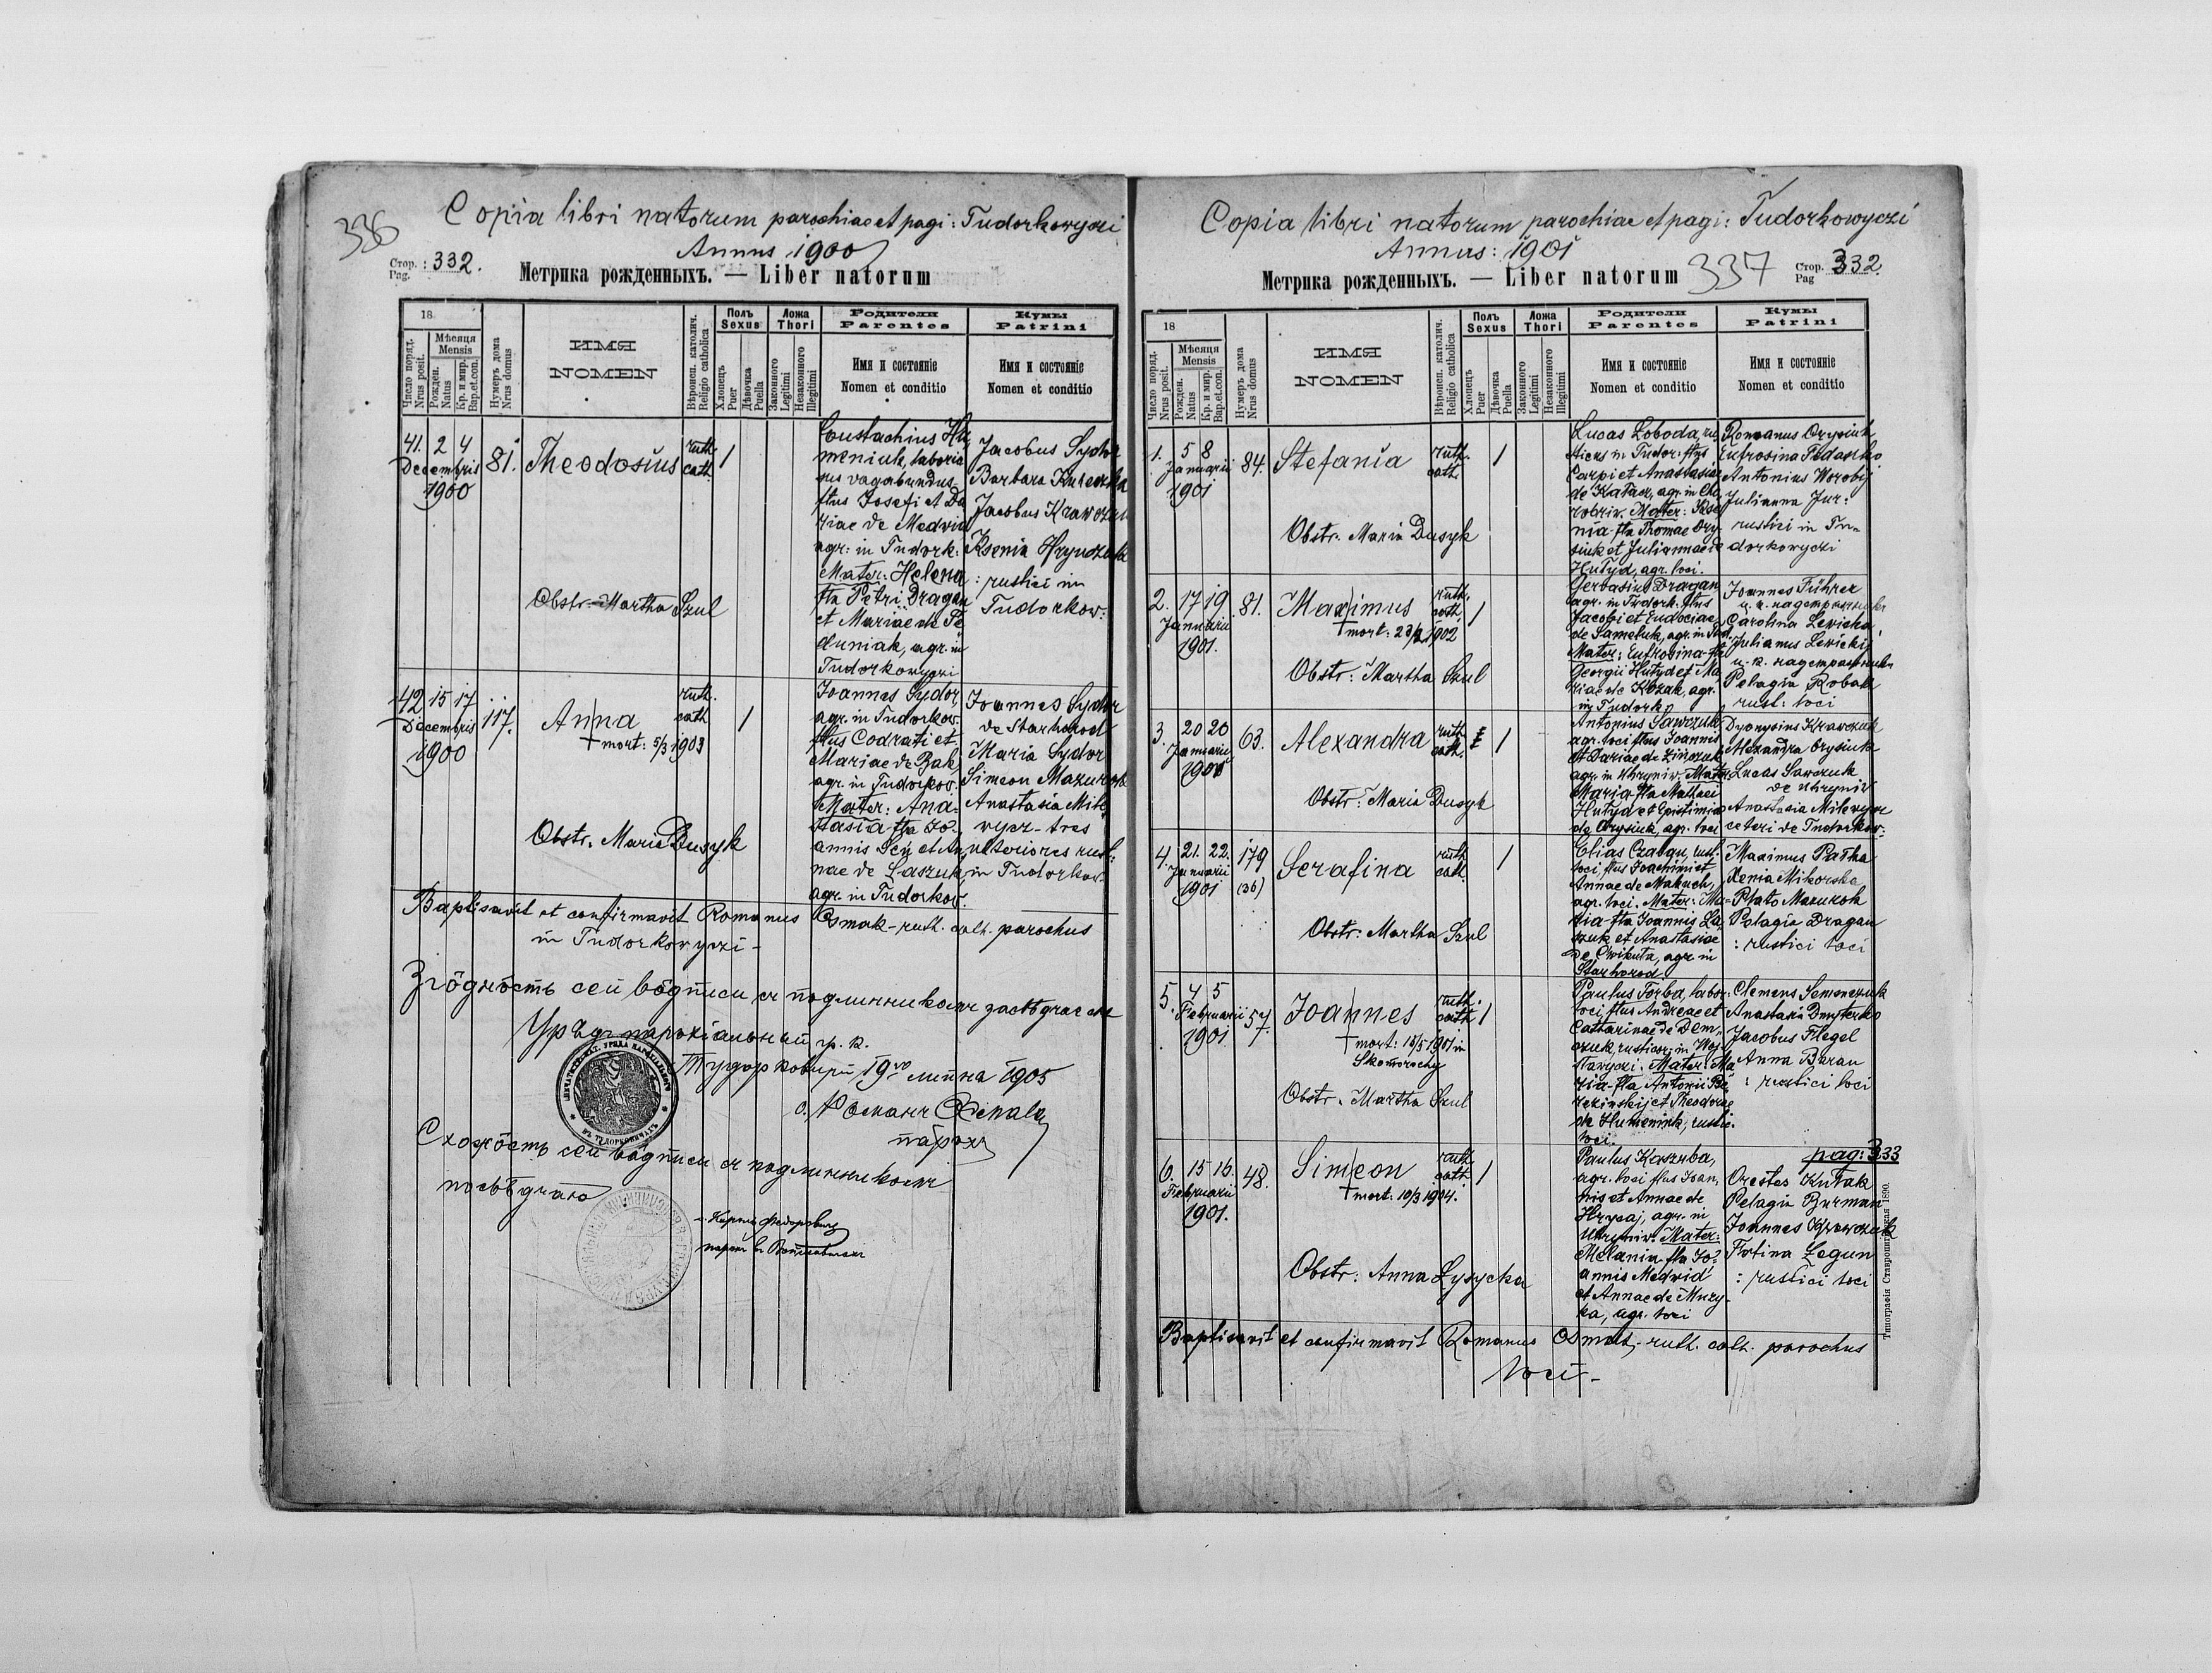 336
Copia libri natorum parochiae et pagi: Tudorkowyczi
Annus 1900
Стор. Pag. : 332.
Метрика рожденныхъ. — Liber natorum
18
Число поряд. Nrus posit.
Мѣсяця Mensis
Рожден. Natus
Кр. и мир. Bap.et.con.
Нумеръ дома Nrus domus
ИМЯ
NOMEN
Вѣроисп. католич. Religio catholica
Полъ Sexus
Хлопець Puer
Дѣвочка Puella
Ложа Thori
Законного Legitimi
Незаконного Illegitimi
Родители Parentes
Имя и состояніе
Nomen et conditio
Кумы Patrini
Имя и состояніе
Nomen et conditio
41. 2 4 Decembris 1900
81.
Theodosius
ruth. cath.
1
Eustachius Hu
meniuk, laborio
sus vagabundus
flius Josefi et Da
riae de Medwid
agr: in Tudork:
Mater: Helena
flla Petri Dragan
et Mariae de Fe
duniak, agr. in
Tudorkowyczi
Jacobus Sydor
Barbara
Jacobus Krawczuk
Ksenia Hrynczuk
: rustici in
Tudorkow:
Obstr. Martha Szul
42 15 17 Decembris 1900
117.
Anna
† mort. 5/3 1903
ruth. cath
1
Joannes Sydor,
agr. in Tudorkow.
flius Codrati et
Mariae de Bak,
agr. in Tudorkow.
Mater: Ana-
stasia flla Jo-
annis Sen et An
nae de Laszuk,
agr. in Tudorkow.
Joannes Sydor
de Starhorod
Maria Sydor
Simeon Mazurok
Anastasia Mile
wycz - tres
ulteriores rust:
in Tudorkow.
Obstr. Maria Dusyk
Baptisavit et confirmavit Romanus Osmak - ruth. cath. parochus
in Tudorkowyczi -
Згôдность сеи вôдписи съ подлинникомъ засвѣдчає ся
Урядъ парохіальный гр. к.
Тудорковичи, 19го липня 1905
о. Романъ Осмакъ
парохъ
Сходнôсть сеи вôдписи съ подлинникомъ
посвѣдчаю
парохъ
Copia libri natorum parochiae et pagi: Tudorkowyczi
Annus: 1901
Метрика рожденныхъ. — Liber natorum
337
Стор. Pag 332.
18
Число поряд. Nrus posit.
Мѣсяця Mensis
Рожден. Natus
Кр. и мир. Bap.et.con.
Нумеръ дома Nrus domus
ИМЯ
NOMEN
Вѣроисп. католич. Religio catholica
Полъ Sexus
Хлопець Puer
Дѣвочка Puella
Ложа Thori
Законного Legitimi
Незаконного Illegitimi
Родители Parentes
Имя и состояніе
Nomen et conditio
Кумы Patrini
Имя и состояніе
Nomen et conditio
1. 5 8 Januarii 1901
84.
Stefania
ruth. cath.
1
Lucas Loboda, ru
sticus in Tudor: flius
Carpi et Anastasiae
de Kałacz, agr. in Cho
robriw. Mater: Kse
nia flla Thomae Ory
siuk et Juliannae de
Hułyd, agr. loci.
Romanus Orysiuk
Eufrosina
Antonius Worobij
Julianna Jur:
rustici in Tu-
dorkowyczi
Obstr. Maria Dusyk
2. 17 19 Januarii 1901.
81.
Maximus
† mort: 23/2 1902
ruth. cath.
1
Gerbasius Dragan,
agr. in Tudork. flius
Jacobi et Eudociae
de Sameluk, agr. in Tud.
Mater: Eufrosina flla
Georgii Hułyd et Ma
riae de Kozak, agr.
in Tudork.
Joannes Führer
Carolina Lewicka,
Julianus Lewicki
Pelagia Robak
rust: loci
Obstr: Martha Szul
3. 20 20 Januarii 1901
63.
Alexandra
ruth. cath.
1
Antonius Sawczuk
agr. loci flius Joannis
et Dariae de Zinczuk,
agr. in Uhryniw. Mater:
Maria flla Mathaei
Hułyd et Epistimia
de Orysiuk, agr. loci
Dyonysius Krawczuk
Alexandra Orysiuk
Lucas Sawczuk
de Uhryniw
Anastasia Milewycz
ceteri de Tudorkow:
Obstr: Maria Dusyk
4. 21. 22. Januarii 1901
179
(36)
Serafina
ruth cath.
1
Elias Czaban, rust.
loci, flius Joachimi et
Annae de Makuch,
agr. loci. Mater: Ma-
ria flla Joannis La
szuk et Anastasiae
de Cwikuta, agr in
Starhorod.
Maximus Patka
Xenia Mikorska
Plato Mazurok
Pelagia Dragan
: rustici loci
Obstr: Martha Szul
5. 4 5 Februarii 1901
57
Joannes
† mort: 15/5 1901 in
Skomorochy
ruth. cath
1
Paulus Torba, labor:
loci, flius Andreae et
Catharinae de Dem-
czuk, rusticor: in Woj
sławyczi. Mater: Ma
ria flla Antonii Be
rezinskij et Theodorae
de Humeniuk, rustic.
loci.
Clemens Semenczuk
Anastasia Dmyterko
Jacobus Flegel
Anna Baran
: rustici loci
Obstr. Martha Szul
6. 15 16. Februarii 1901.
48.
Simeon
† mort. 10/3 1904.
ruth. cath.
1
Paulus Kaszuba,
agr. loci flius Joan
nis et Annae de
Hrycaj, agr. in
Uhryniw. Mater:
Melania flla Jo-
annis Medwid
et Annae de Muzy-
ka, agr. loci
pag: 333
Orestes Kułak
Pelagia Burman
Joannes Krawczuk
Fotina Legun
: rustici loci
Obstr: Anna Łysycka
Baptisavit et confirmavit Romanus Osmak, ruth. cath. parochus
loci -
Типографія Ставропигійская 1890.